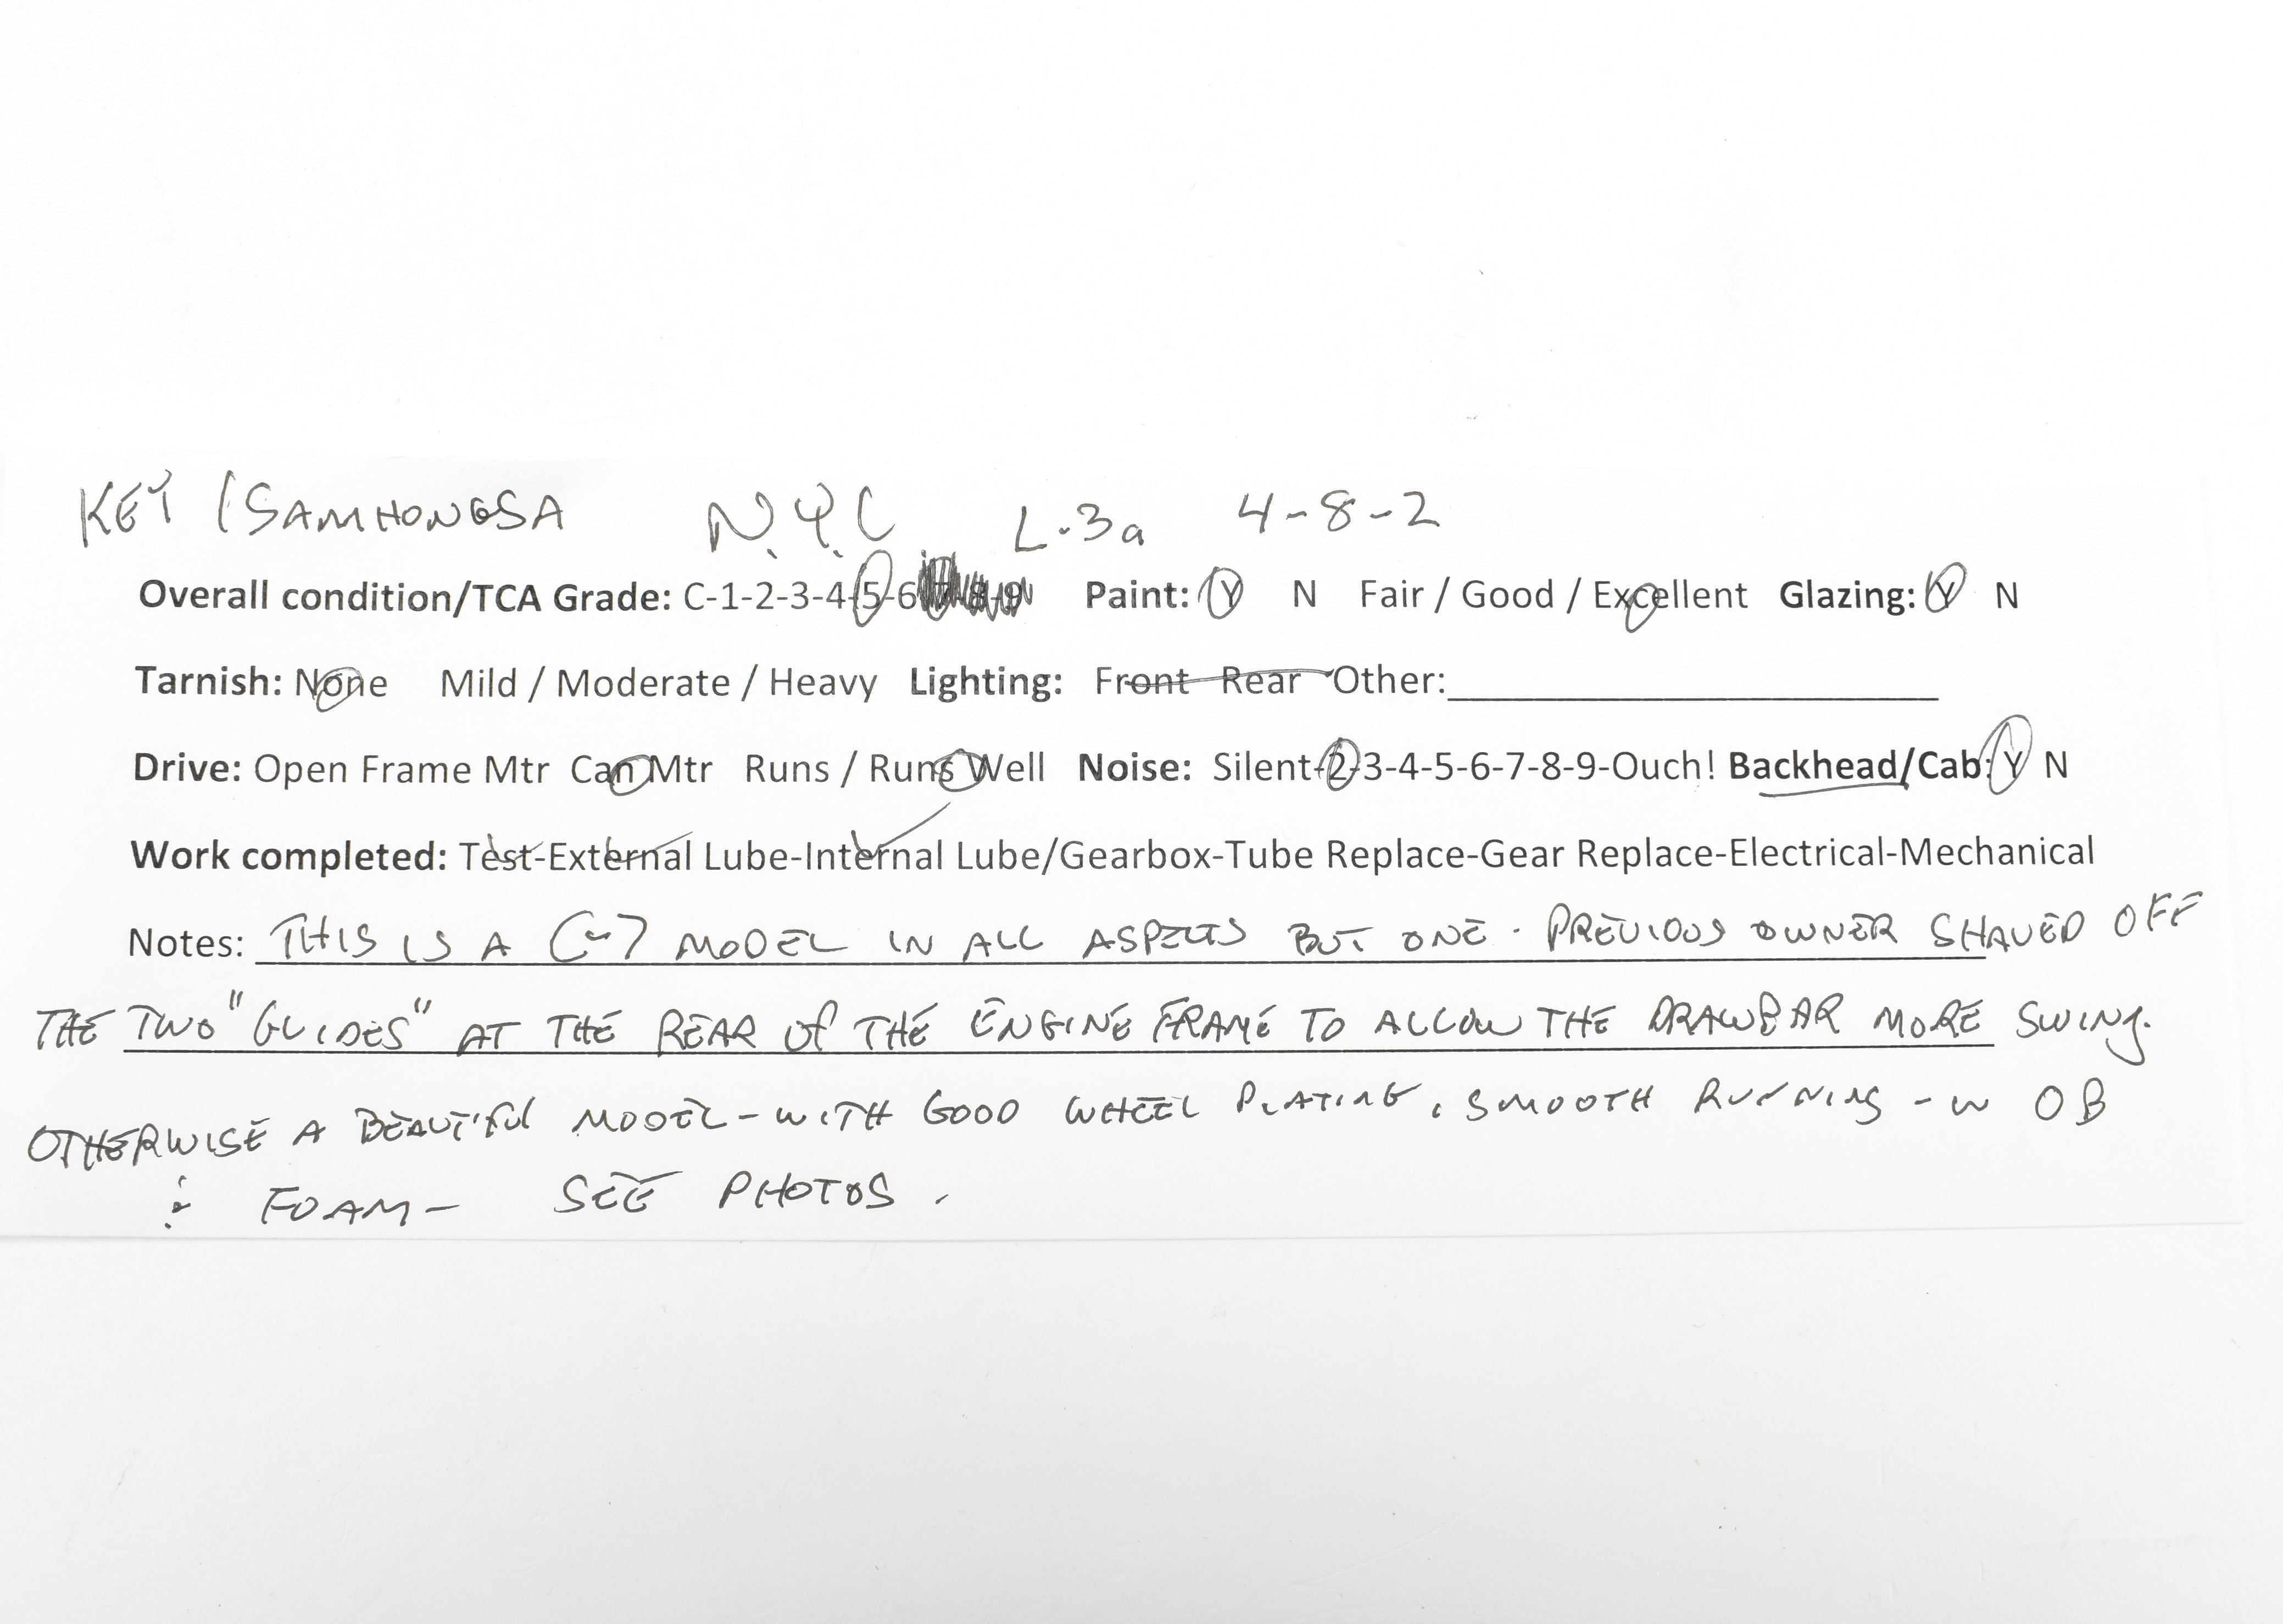 KEY / SAMHONGSA N.Y.C L-3a 4-8-2
Overall condition/TCA Grade: C-1-2-3-4-5-6-7-8-9 Paint: Y N Fair / Good / Excellent Glazing: Y N
Tarnish: None Mild / Moderate / Heavy Lighting: Front Rear Other:
Drive: Open Frame Mtr Can Mtr Runs / Runs Well Noise: Silent-2-3-4-5-6-7-8-9-Ouch! Backhead/Cab: Y N
Work completed: Test-External Lube-Internal Lube/Gearbox-Tube Replace-Gear Replace-Electrical-Mechanical
Notes: THIS IS A C-7 MODEL IN ALL ASPECTS BUT ONE. PREVIOUS OWNER SHAVED OFF
THE TWO "GUIDES" AT THE REAR of THE ENGINE FRAME TO ALLOW THE DRAWBAR MORE SWING.
OTHERWISE A BEAUTIFUL MODEL - WITH GOOD WHEEL PLATING, SMOOTH RUNNING - w OB
& FOAM - SEE PHOTOS.